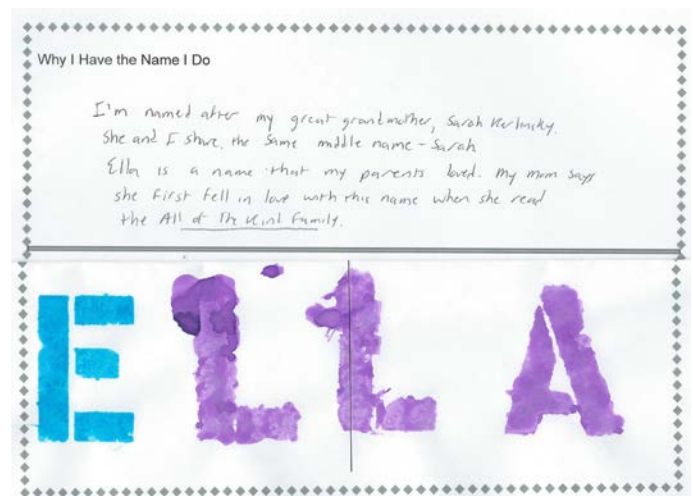 Why I Have the Name I Do
I'm named after my great grandmother, Sarah
She and I share, the same middle name - Sarah
Ella is a name that my parents loved. My mom says
she first fell in love with this name when she read
the All of The Kind Family.
ELLA